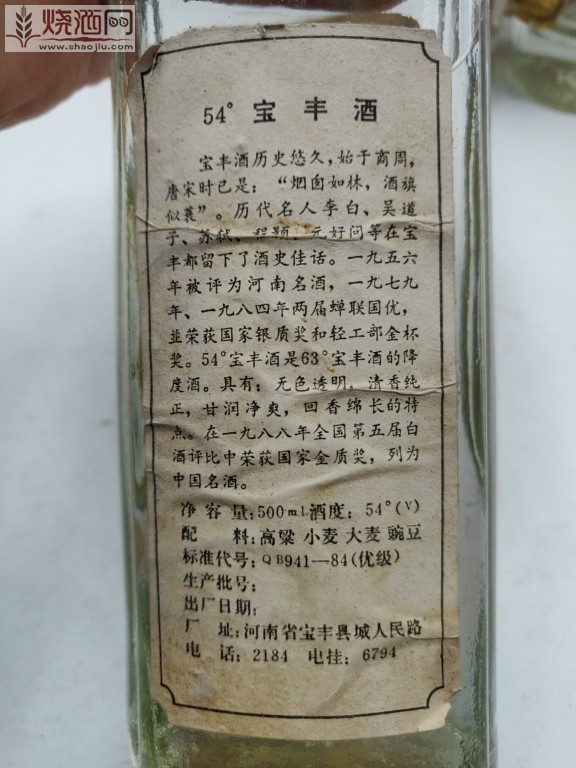 烧酒网
www.shaojiu.com
54° 宝丰酒
宝丰酒历史悠久，始于商周，
唐宋时已是：“烟囱如林，酒旗
似蓑”。历代名人李白、吴道
子、苏轼、程颢、元好问等在宝
丰都留下了酒史佳话。一九五六
年被评为河南名酒，一九七九
年、一九八四年两届蝉联国优，
並荣获国家银质奖和轻工部金杯
奖。54°宝丰酒是63°宝丰酒的降
度酒。具有：无色透明，清香纯
正，甘润净爽，回香绵长的特
点。在一九八八年全国第五届白
酒评比中荣获国家金质奖，列为
中国名酒。
净容量：500mL 酒度：54°(V)
配料：高粱 小麦 大麦 豌豆
标准代号：QB941—84(优级)
生产批号：
出厂日期：
厂址：河南省宝丰县城人民路
电话：2184 电挂：6794